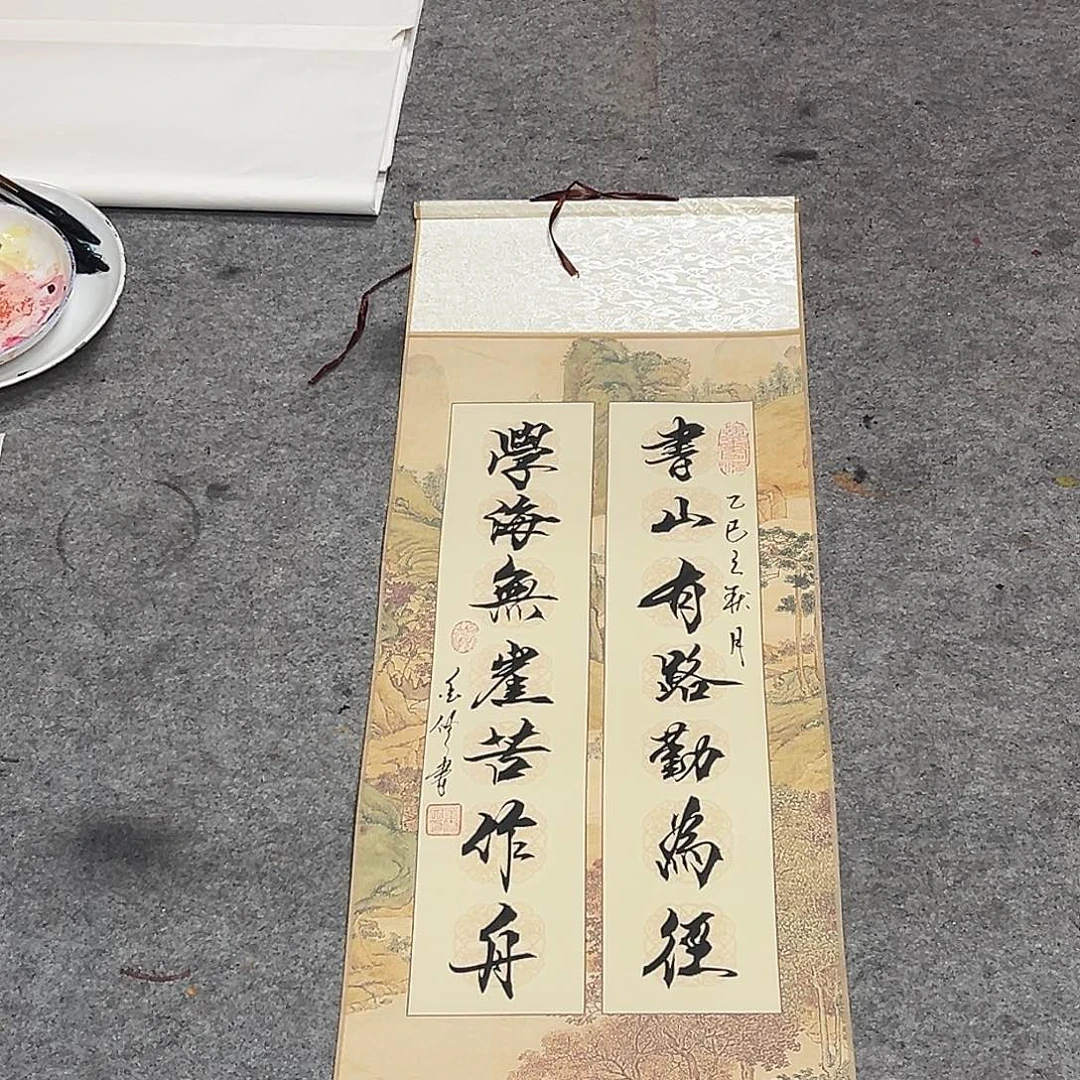 書山有路勤為徑
乙巳立秋月
學海無崖苦作舟
書